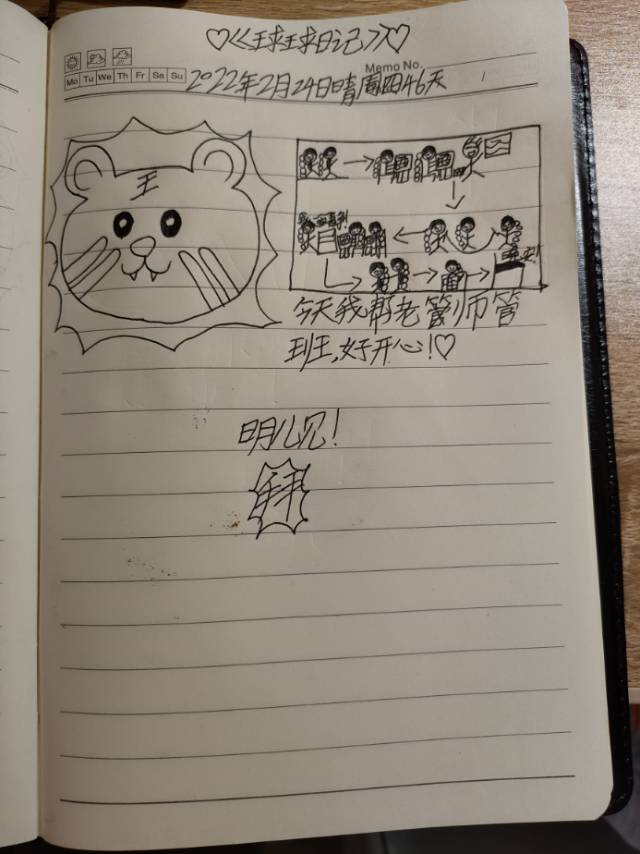 ♡《球球日记》♡
Memo No.
Mo Tu We Th Fr Sa Su
2022年2月24日晴周四46天
王
今天我帮老师管
班,好开心!♡
明儿见!
拜